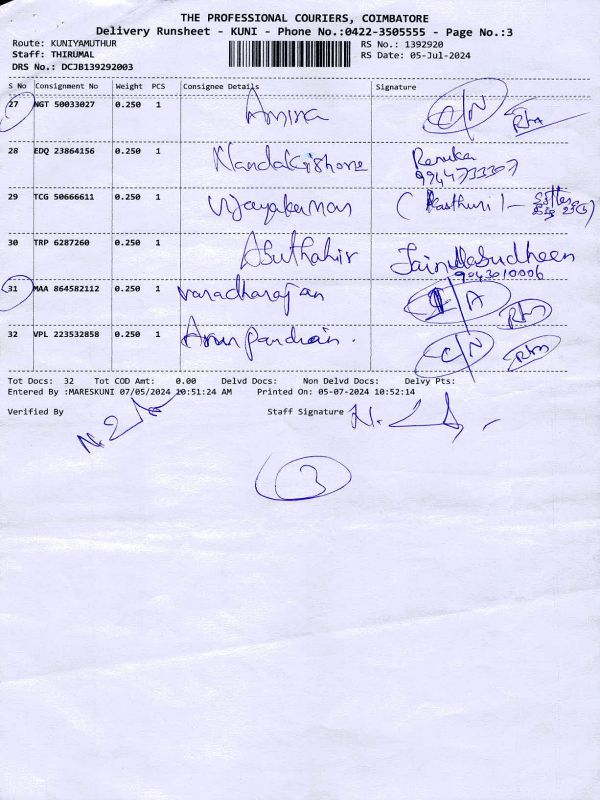 THE PROFESSIONAL COURIERS, COIMBATORE
Delivery Runsheet - KUNI - Phone No.:0422-3505555 - Page No.:3
Route: KUNIYAMUTHUR RS No.: 1392920
Staff: THIRUMAL RS Date: 05-Jul-2024
DRS No.: DCJB139292003
S No Consignment No Weight PCS Consignee Details Signature
27 NGT 50033027 0.250 1 Amira C/N Rtn
28 EDQ 23864156 0.250 1 Nandakishore Renuka
29 TCG 50666611 0.250 1 Vijayakumar (Kasthuri)
30 TRP 6287260 0.250 1 Abuthahir Jainulabudheen
9043010006
31 MAA 864582112 0.250 1 varadharajan A Rtn
32 VPL 223532858 0.250 1 Arun pandian. C/N Rtn
Tot Docs: 32 Tot COD Amt: 0.00 Delvd Docs: Non Delvd Docs: Delvy Pts:
Entered By :MARESKUNI 07/05/2024 10:51:24 AM Printed On: 05-07-2024 10:52:14
Verified By Staff Signature
3